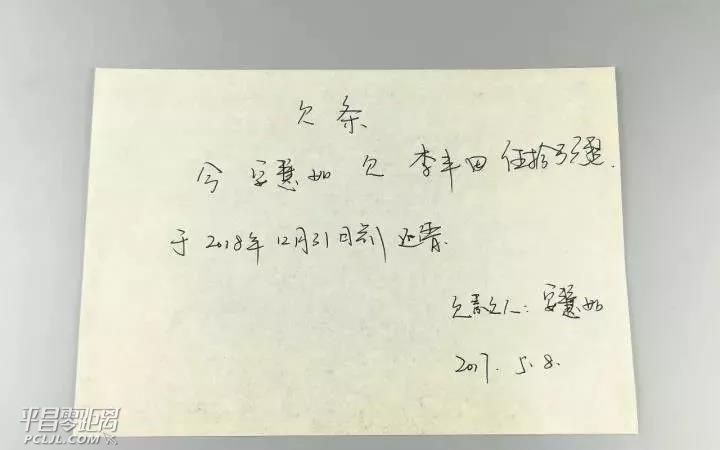 欠条
今 安慧如 欠 李丰田 伍拾万整.
于 2018年 12月31日前 还清.
欠款人: 安慧如
2017. 5. 8.
平昌零距离
PCLJL.COM